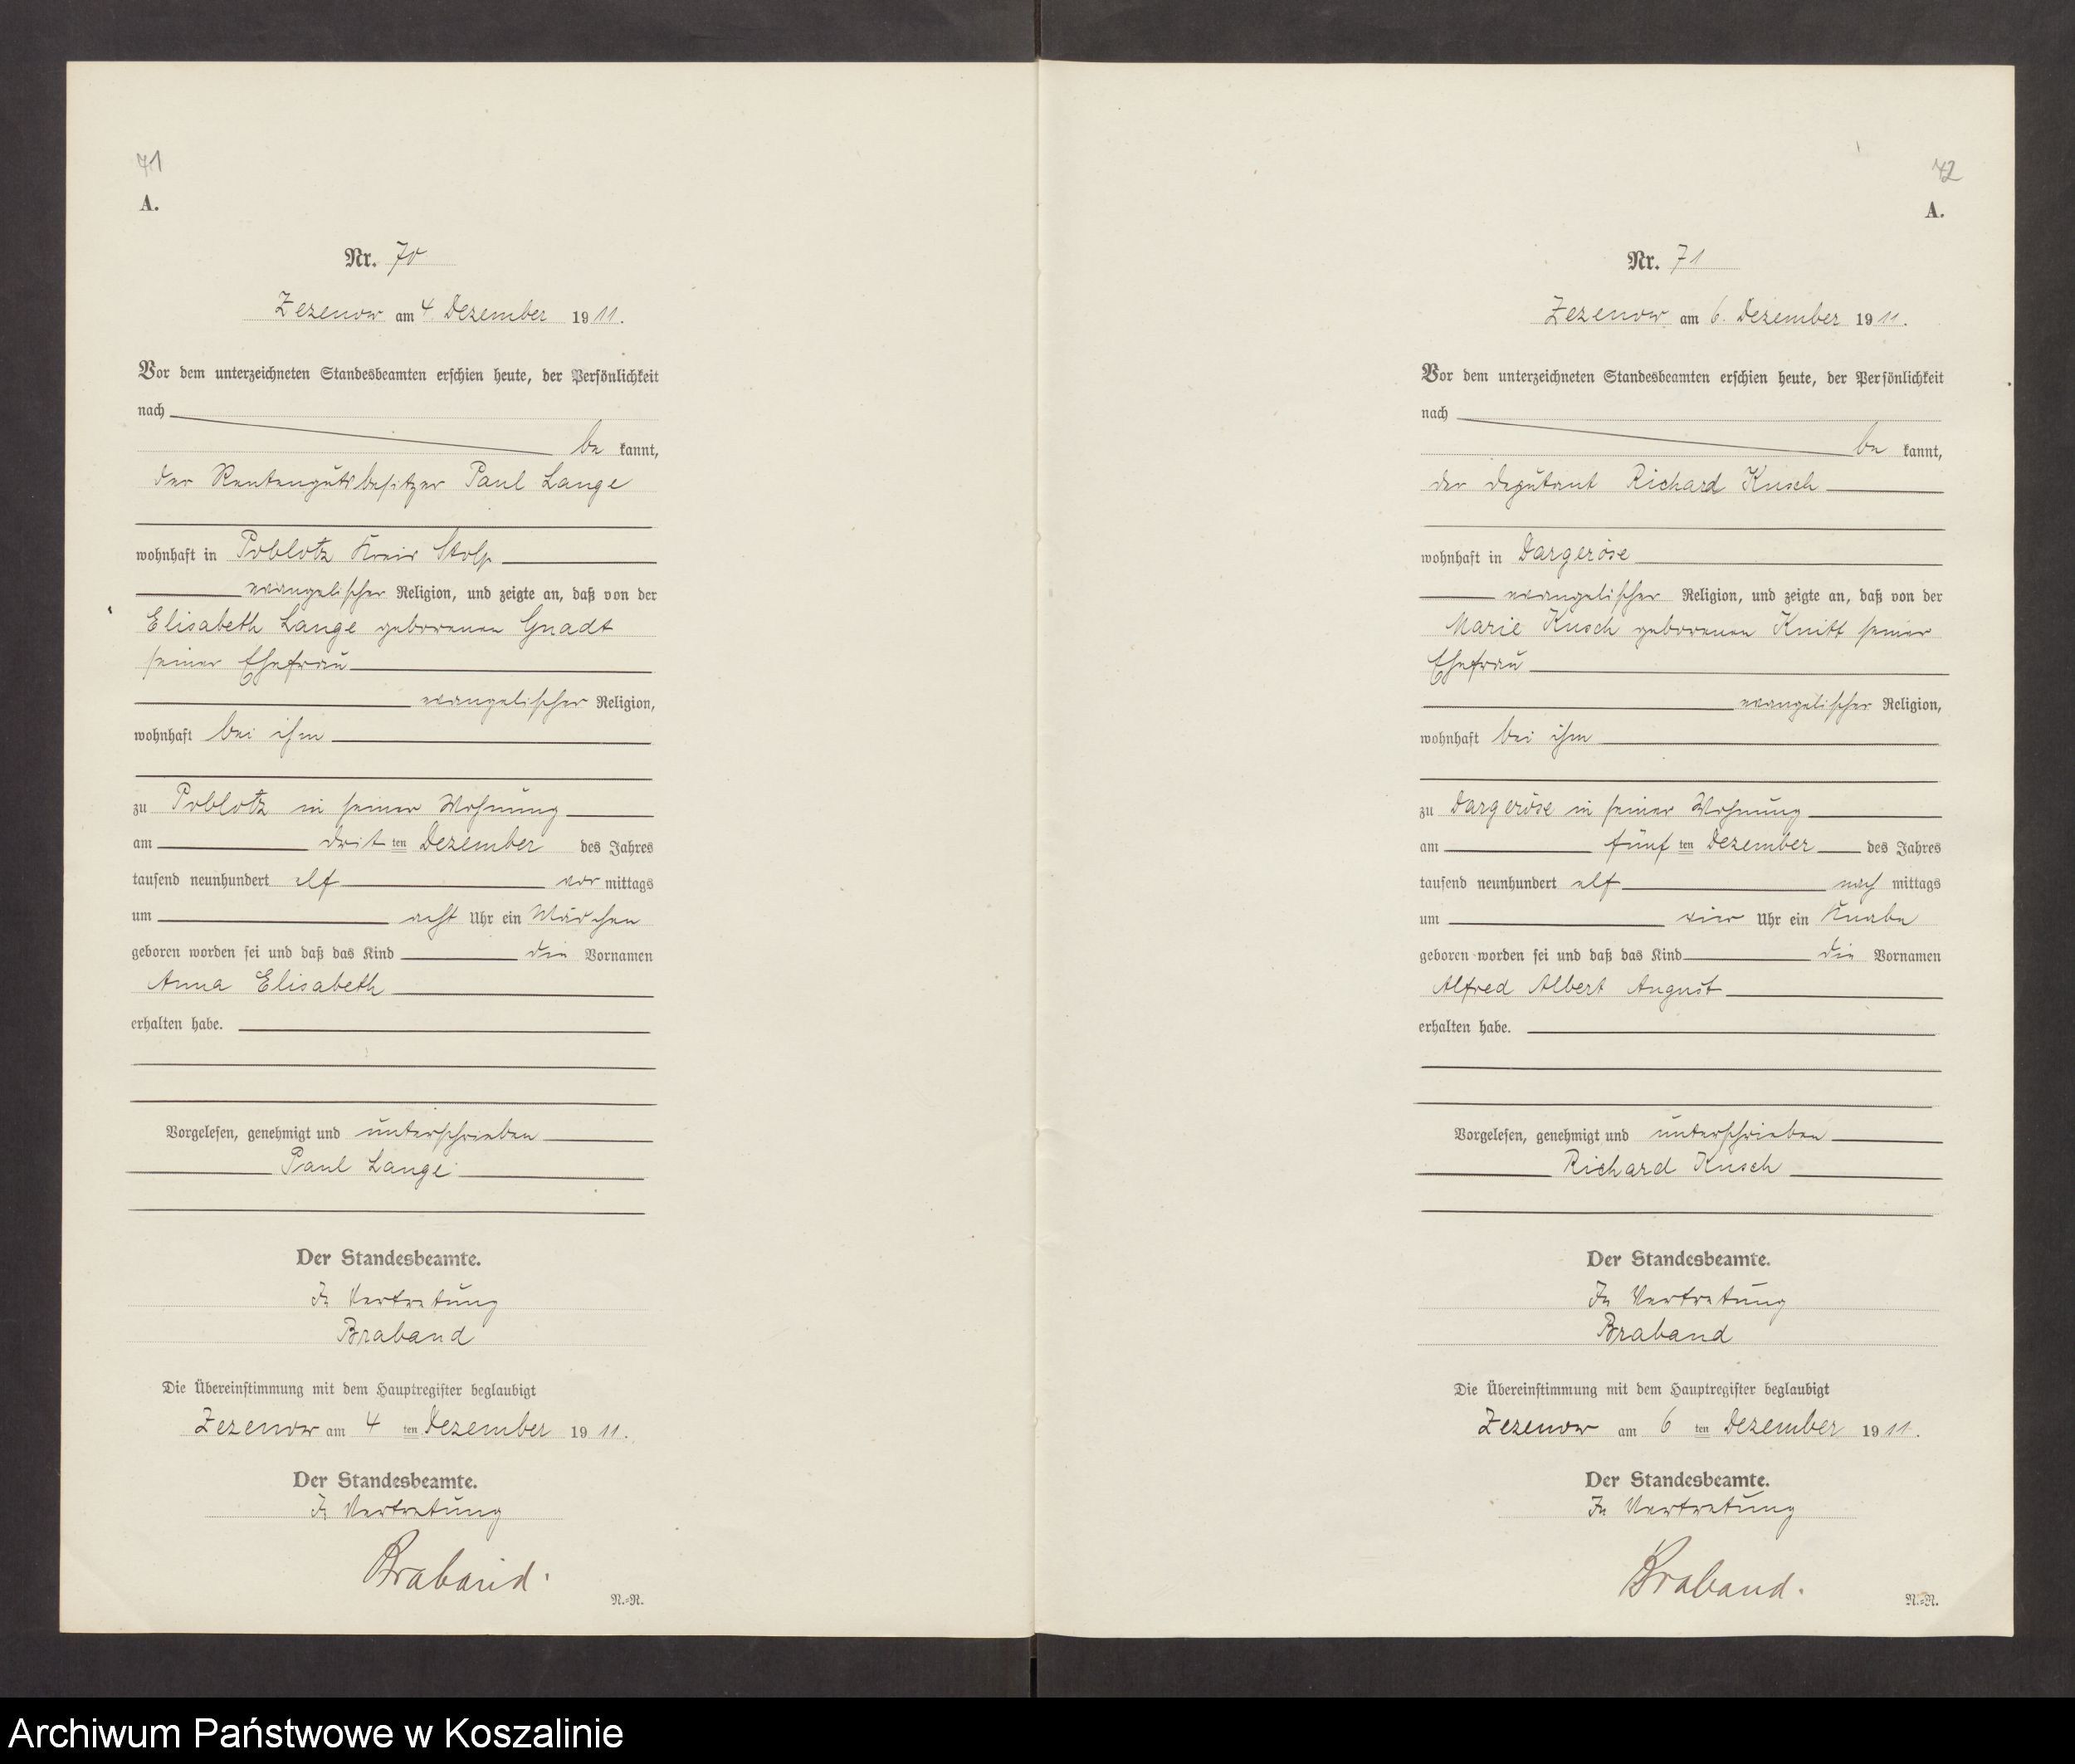 71
A.
Nr. 70
Zezenow am 4. Dezember 1911.
Vor dem unterzeichneten Standesbeamten erschien heute, der Persönlichkeit
nach
be kannt,
der Rentengutsbesitzer Paul Lange
wohnhaft in Poblotz Kreis Stolp
evangelischer Religion, und zeigte an, daß von der
Elisabeth Lange geborenen Gnadt
seiner Ehefrau
evangelischer Religion,
wohnhaft bei ihm
zu Poblotz in seiner Wohnung
am drit ten Dezember des Jahres
tausend neunhundert elf vor mittags
um acht Uhr ein Mädchen
geboren worden sei und daß das Kind die Vornamen
Anna Elisabeth
erhalten habe.
Vorgelesen, genehmigt und unterschrieben
Paul Lange
Der Standesbeamte.
In Vertretung
Braband
Die Übereinstimmung mit dem Hauptregister beglaubigt
Zezenow am 4 ten Dezember 1911.
Der Standesbeamte.
In Vertretung
Braband.
N.=N.
72
A.
Nr. 71
Zezenow am 6. Dezember 1911.
Vor dem unterzeichneten Standesbeamten erschien heute, der Persönlichkeit
nach
be kannt,
der Deputant Richard Kusch
wohnhaft in Dargeröse
evangelischer Religion, und zeigte an, daß von der
Marie Kusch geborenen Knitt seiner
Ehefrau
evangelischer Religion,
wohnhaft bei ihm
zu Dargeröse in seiner Wohnung
am fünf ten Dezember des Jahres
tausend neunhundert elf nach mittags
um vier Uhr ein Knabe
geboren worden sei und daß das Kind die Vornamen
Alfred Albert August
erhalten habe.
Vorgelesen, genehmigt und unterschrieben
Richard Kusch
Der Standesbeamte.
In Vertretung
Braband
Die Übereinstimmung mit dem Hauptregister beglaubigt
Zezenow am 6 ten Dezember 1911.
Der Standesbeamte.
In Vertretung
Braband.
N.=N.
Archiwum Państwowe w Koszalinie